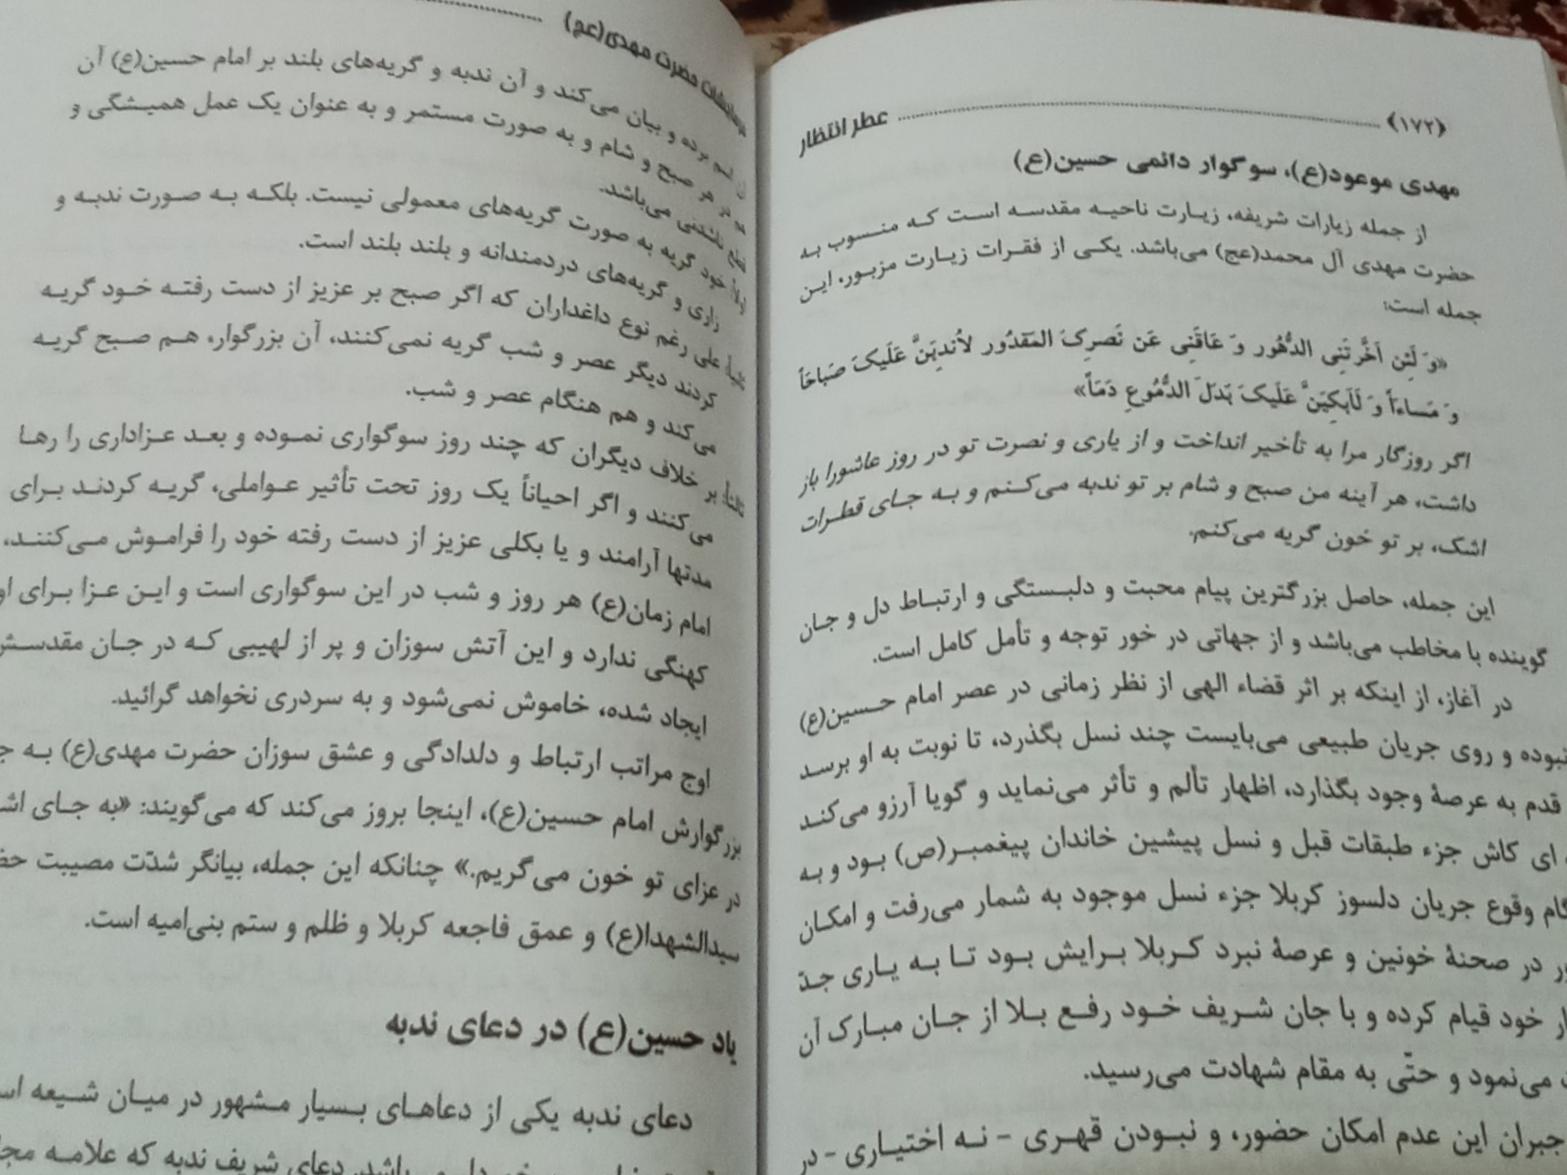 ﴿۱۷۲﴾ عطر انتظار
مهدی موعود(ع)، سوگوار دائمی حسین(ع)
از جمله زیارات شریفه، زیارت ناحیه مقدسه است که منسوب به
حضرت مهدی آل محمد(عج) می‌باشد. یکی از فقرات زیارت مزبور، این
جمله است:
«وَ لَئِن اَخَّرَتنِی الدُّهُور وَ عَاقَنِی عَن نَصرِکَ المَقدُور لاَندِبَنَّ عَلَیکَ صَبَاحَاً
وَ مَسَاءَاً وَ لَاَبکِیَنَّ عَلَیکَ بَدَلَ الدُّمُوعِ دَمَاً»
اگر روزگار مرا به تأخیر انداخت و از یاری و نصرت تو در روز عاشورا باز
داشت، هر آینه من صبح و شام بر تو ندبه می‌کنم و به جای قطرات
اشک، بر تو خون گریه می‌کنم.
این جمله، حاصل بزرگترین پیام محبت و دلبستگی و ارتباط دل و جان
گوینده با مخاطب می‌باشد و از جهاتی در خور توجه و تأمل کامل است.
در آغاز، از اینکه بر اثر قضاء الهی از نظر زمانی در عصر امام حسین(ع)
نبوده و روی جریان طبیعی می‌بایست چند نسل بگذرد، تا نوبت به او برسد
قدم به عرصهٔ وجود بگذارد، اظهار تألم و تأثر می‌نماید و گویا آرزو می‌کند
ای کاش جزء طبقات قبل و نسل پیشین خاندان پیغمبر(ص) بود و به
وقوع جریان دلسوز کربلا جزء نسل موجود به شمار می‌رفت و امکان
در صحنهٔ خونین و عرصهٔ نبرد کربلا برایش بود تا به یاری جدّ
خود قیام کرده و با جان شریف خود رفع بلا از جان مبارک آن
می‌نمود و حتّی به مقام شهادت می‌رسید.
جبران این عدم امکان حضور، و نبودن قهری - نه اختیاری - در
حضرت مهدی(عج)
اسم برده و بیان می‌کند و آن ندبه و گریه‌های بلند بر امام حسین(ع) آن
هم در هر صبح و شام و به صورت مستمر و به عنوان یک عمل همیشگی و
قطع ناشدنی می‌باشد.
اولاً: خود گریه به صورت گریه‌های معمولی نیست. بلکه به صورت ندبه و
زاری و گریه‌های دردمندانه و بلند بلند است.
ثانیاً: علی رغم نوع داغداران که اگر صبح بر عزیز از دست رفته خود گریه
کردند دیگر عصر و شب گریه نمی‌کنند، آن بزرگوار، هم صبح گریه
می‌کند و هم هنگام عصر و شب.
ثالثاً: بر خلاف دیگران که چند روز سوگواری نموده و بعد عزاداری را رها
می‌کنند و اگر احیاناً یک روز تحت تأثیر عواملی، گریه کردند برای
مدتها آرامند و یا بکلی عزیز از دست رفته خود را فراموش می‌کنند،
امام زمان(ع) هر روز و شب در این سوگواری است و این عزا برای او
کهنگی ندارد و این آتش سوزان و پر از لهیبی که در جان مقدسش
ایجاد شده، خاموش نمی‌شود و به سردی نخواهد گرائید.
اوج مراتب ارتباط و دلدادگی و عشق سوزان حضرت مهدی(ع) به
بزرگوارش امام حسین(ع)، اینجا بروز می‌کند که می‌گویند: «به جای
در عزای تو خون می‌گریم.» چنانکه این جمله، بیانگر شدّت مصیبت
سیدالشهدا(ع) و عمق فاجعه کربلا و ظلم و ستم بنی‌امیه است.
یاد حسین(ع) در دعای ندبه
دعای ندبه یکی از دعاهای بسیار مشهور در میان شیعه
می‌باشد. دعای شریف ندبه که علامه